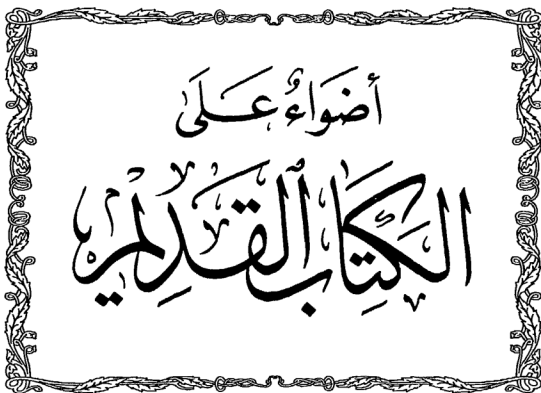 أضَواءٌ عَلَى
الكِتَابِ القَدِيمِ